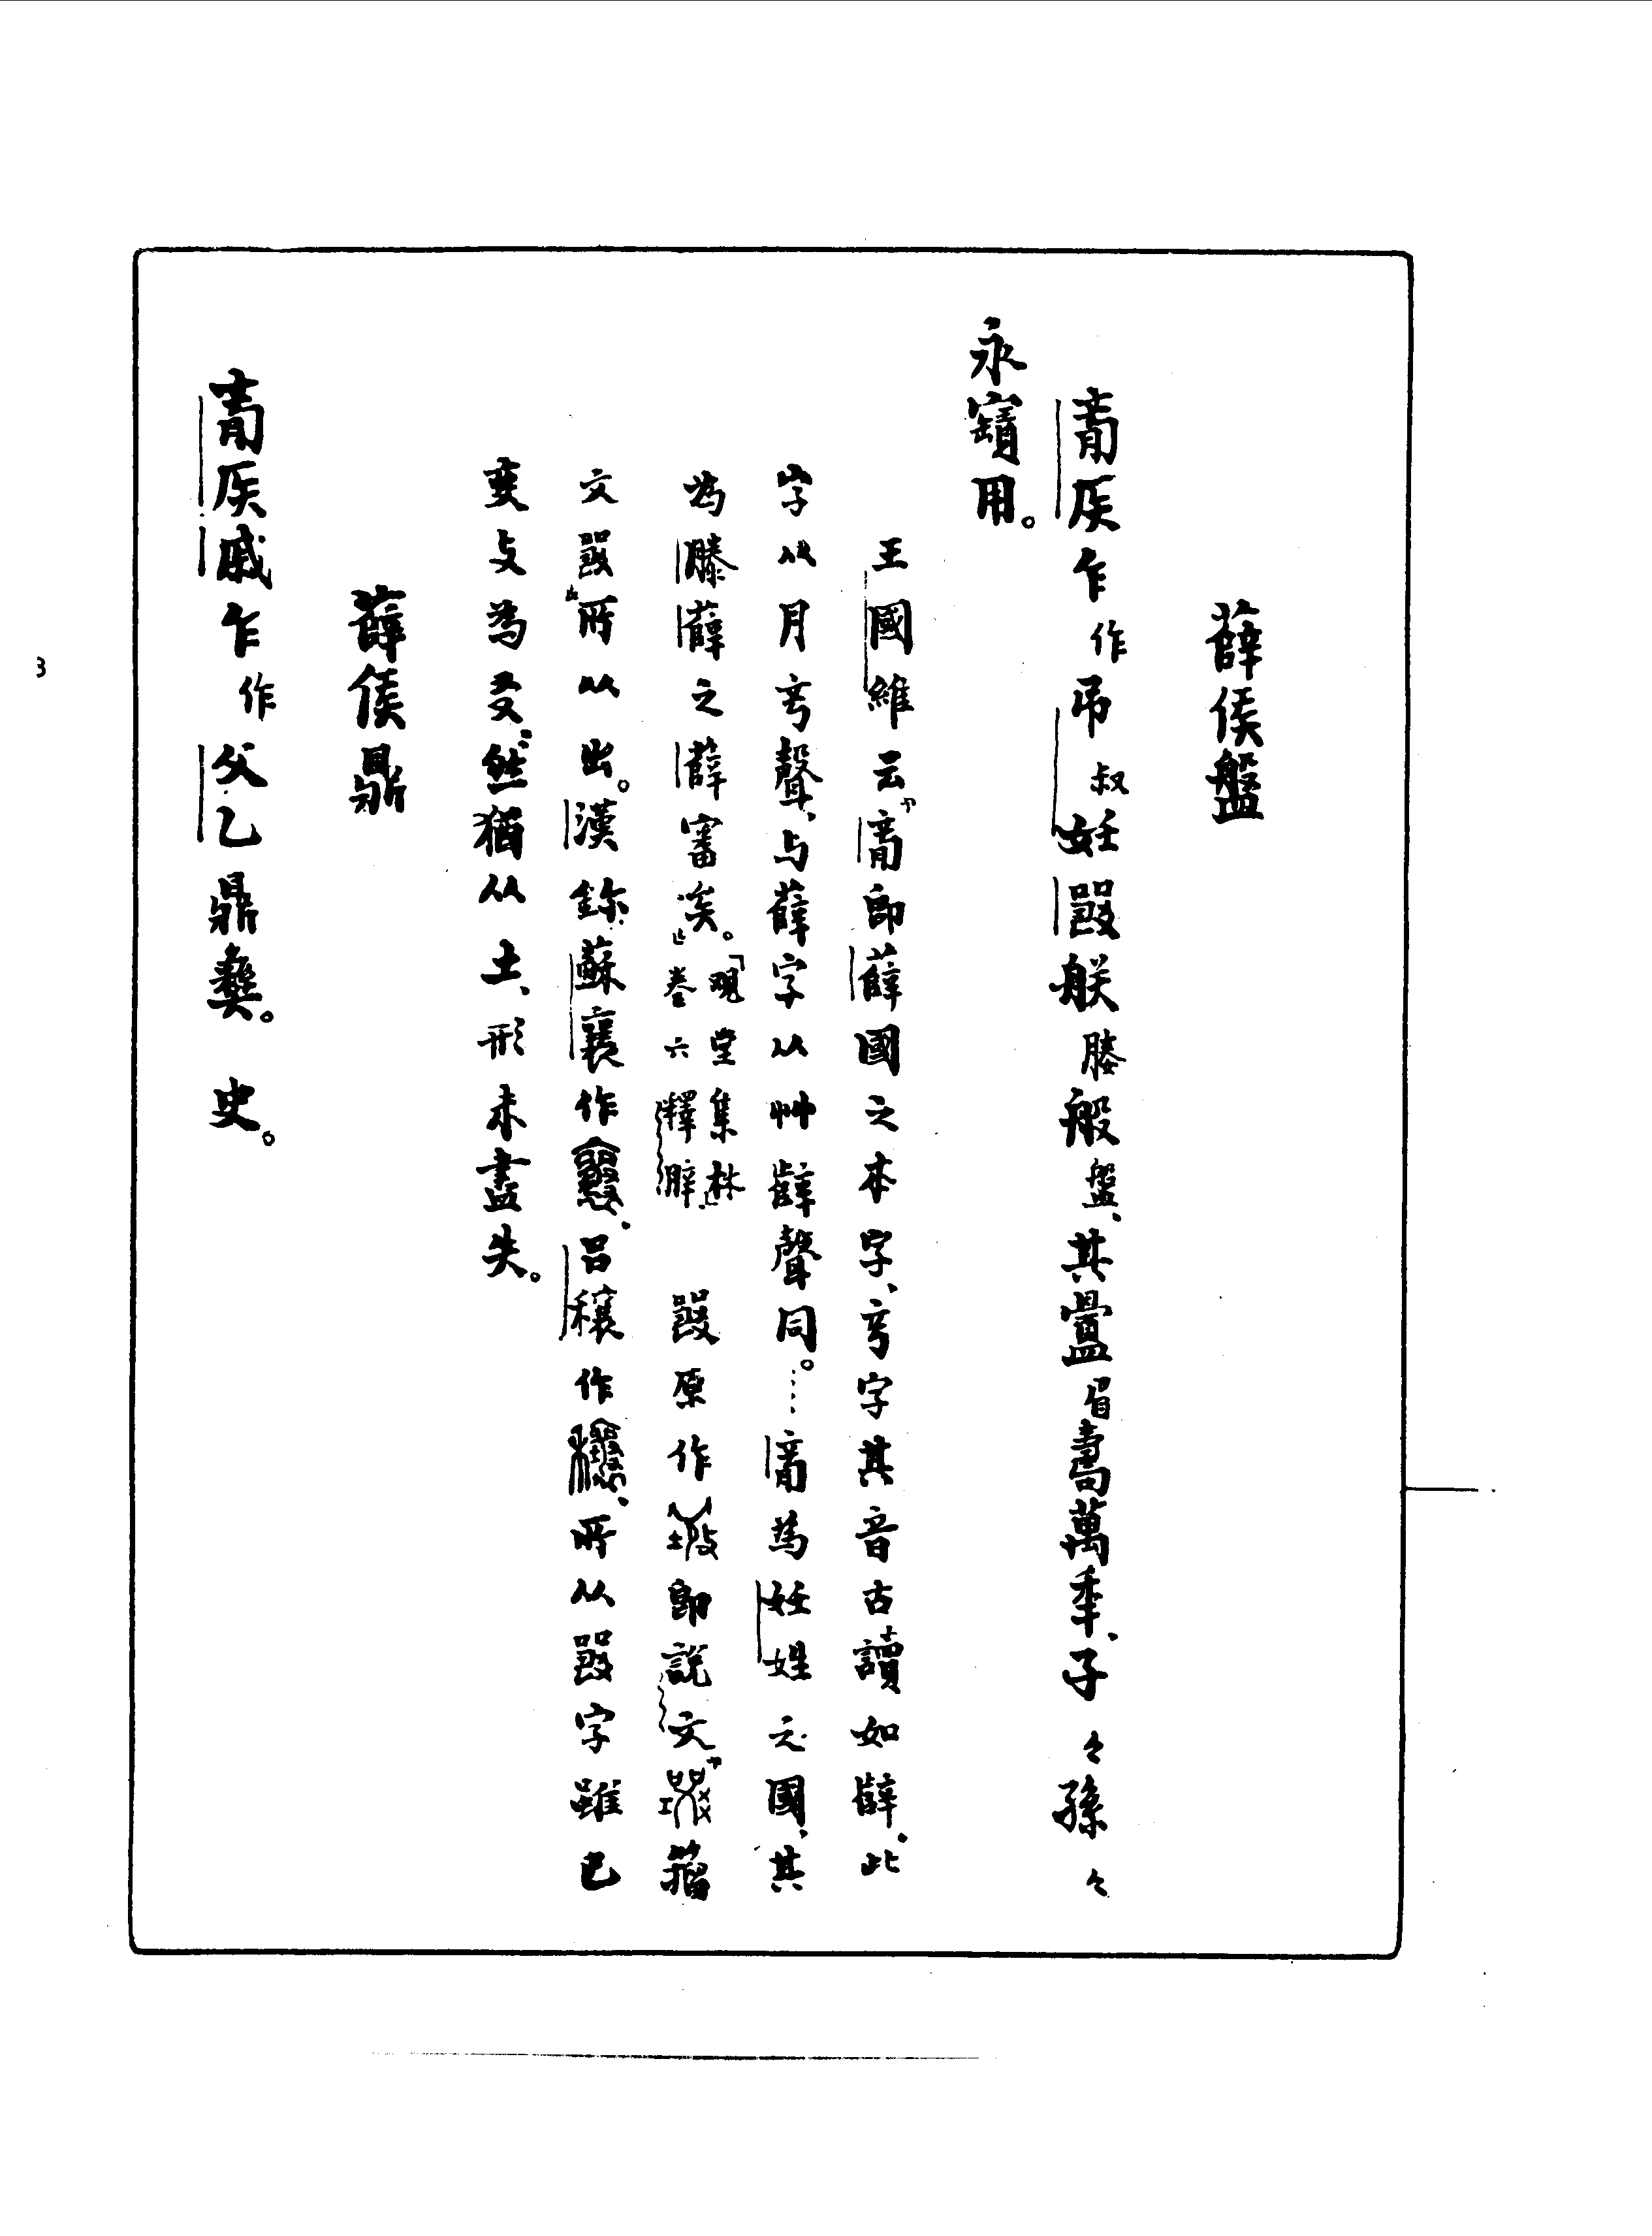 薛侯盤
𮌎侯乍作弔叔妊𧟟朕媵般盤、其𥃝眉壽萬年、子〻孫〻
永寶用。
王國維云『𮌎即薛國之本字、䇂字其音古讀如辥、此
字从月䇂聲、与薛字从艸辥聲同。……𮌎為妊姓之國、其
為滕薛之薛審矣。』「觀堂集林」卷六釋辥 𧟟原作 即說文『 籀
文𧟟』所从出。漢鉨蘇襄作 、吕穰作 、所从𧟟字雖已
变攴為殳、然猶从土、形未盡失。
薛侯鼎
𮌎侯戚乍作父乙鼎彝。史。